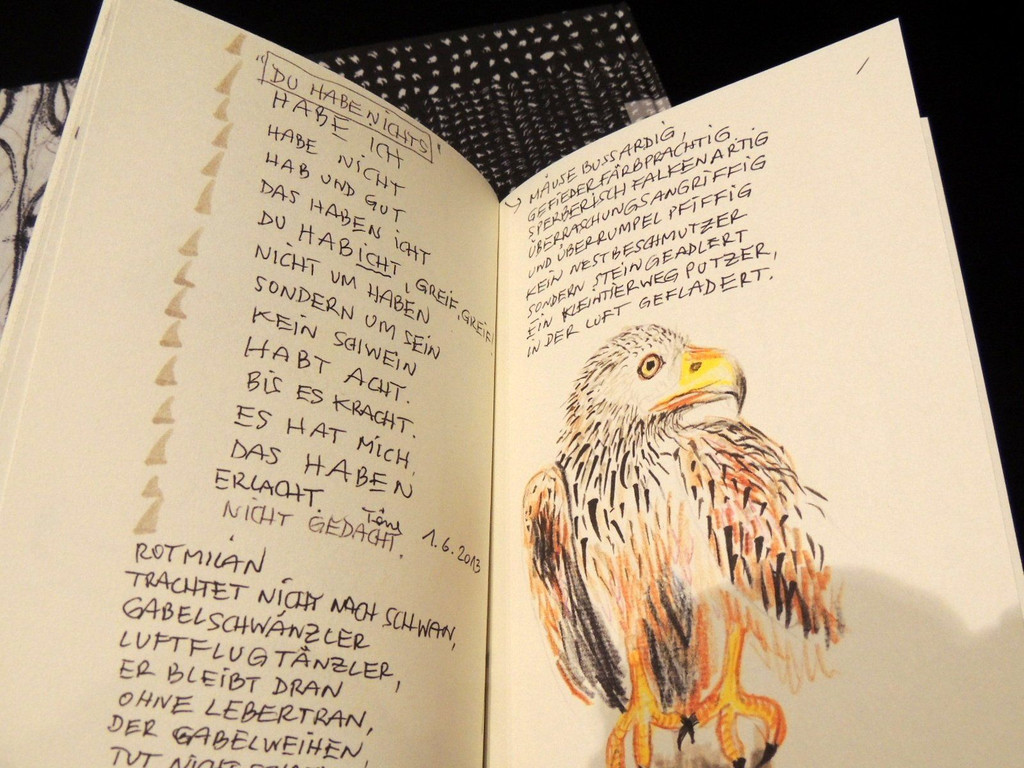 "DU HABE NICHTS"
HABE ICH
HABE NICHT
HAB UND GUT
DAS HABEN ICHT
DU HABICHT, GREIF, GREIF!
NICHT UM HABEN
SONDERN UM SEIN
KEIN SCHWEIN
HABT ACHT.
BIS ES KRACHT.
ES HAT MICH.
DAS HABEN
ERLACHT.
NICHT GEDACHT.
1.6.2013
ROTMILAN
TRACHTET NICHT NACH SCHWAN,
GABELSCHWÄNZLER
LUFTFLUGTÄNZLER,
ER BLEIBT DRAN
OHNE LEBERTRAN,
DER GABELWEIHEN,
TUT NICHT
MÄUSEBUSSARDIG,
GEFIEDERFARBPRÄCHTIG
SPERBERISCH FALKENARTIG
ÜBERRASCHUNGSANGRIFFIG
UND ÜBERRUMPELPFIFFIG
KEIN NESTBESCHMUTZER
SONDERN STEINGEADLERT
EIN KLEINTIERWEGPUTZER,
IN DER LUFT GEFLADERT.